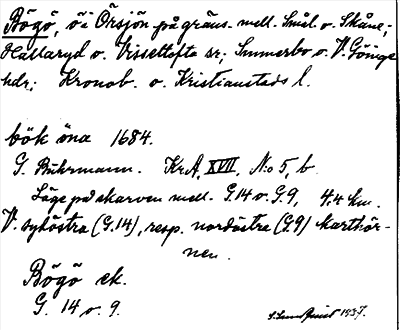 Bögö, ö i Örsjön på gräns. mell. Smål. o. Skåne;
Hallaryd o. Visseltofta sr; Sunnerbo o. V. Göinge
hdr; Kronob. o. Kristianstads l.
bök öna 1684.
G. Buhrmann. KrA, XVIII, No 5, b
Läge på skarven mell. G.14 o. G.9, 4.4 km.
V. sydöstra (G.14), resp. nordöstra (G.9) karthör-
nen.
Bögö ek.
G. 14 o. 9.
S. Sundquist 1937.